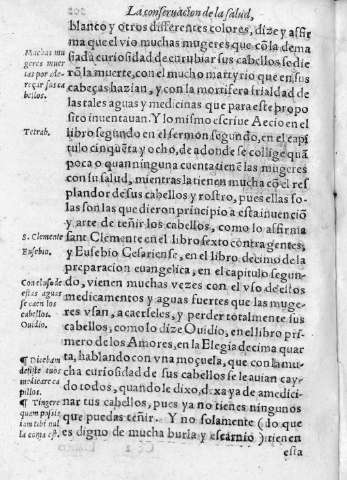 La conseruacion de la salud,
blanco y otros differentes colores, dize y affir
ma que el vio muchas mugeres que cõ la dema
siada curiosidad de enrubiar sus cabellos se die
rõ la muerte, con el mucho martyrio que en sus
cabeças hazian, y con la mortifera frialdad de
las tales aguas y medicinas que para este propo
sito inuentauan. Y lo mismo escriue Aecio en el
libro segundo en el sermón segundo, en el capi
tulo cinquẽta y ocho, de adonde se collige quã
poca o quan ninguna cuenta tienẽ las mugeres
con su salud, mientras la tienen mucha cõ el res
plandor de sus cabellos y rostro, pues ellas so-
las son las que dieron principio a esta inuenciõ
y arte de teñir los cabellos, como lo affirma
sant Clemente en el libro sexto contra gentes,
y Eusebio Cesariense, en el libro decimo de la
preparacion euangelica, en el capitulo segun-
do, vienen muchas vezes con el vso de estos
medicamentos y aguas fuertes que las muge-
res vsan, a caerseles, y perder totalmente sus
cabellos, como lo dize Ouidio, en el libro pri-
mero de los Amores, en la Elegia decima quar
ta, hablando con vna moçuela, que con la mu-
cha curiosidad de sus cabellos se le auian cay-
do todos, quando le dixo, dexa ya de amedici-
nar tus cabellos, pues ya no tienes ningunos
que puedas teñir. Y no solamente (do que
es digno de mucha burla y escarnio) tienen
esta
Muchas mu
geres muer
tas por
reçar sus ca
bellos.
Tetrab.
S. Clemente
Eusebio.
Con el vso de
estas aguas
se caen los
cabellos.
Ouidio.
¶ Dicebam
tuos
medicare ca
pillos.
¶ Tingere
quam possis
iam tibi nul
la coma est.